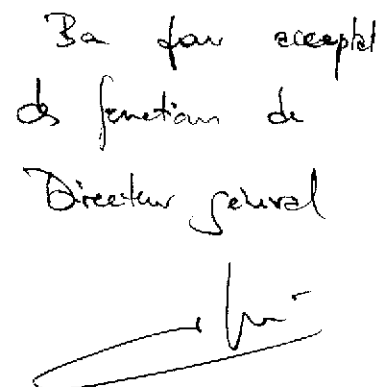 Bon pour acceptat
des fonctions de
Directeur général